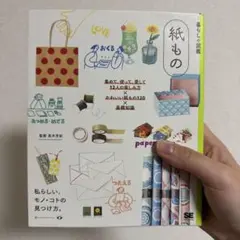 暮らしの図鑑
紙もの
おくる
集めて、使って、愛して
12人の楽しみ方
×
かわいい紙もの120
×
基礎知識
paper
つたえる
私らしい、
モノ・コトの
見つけ方。
SE